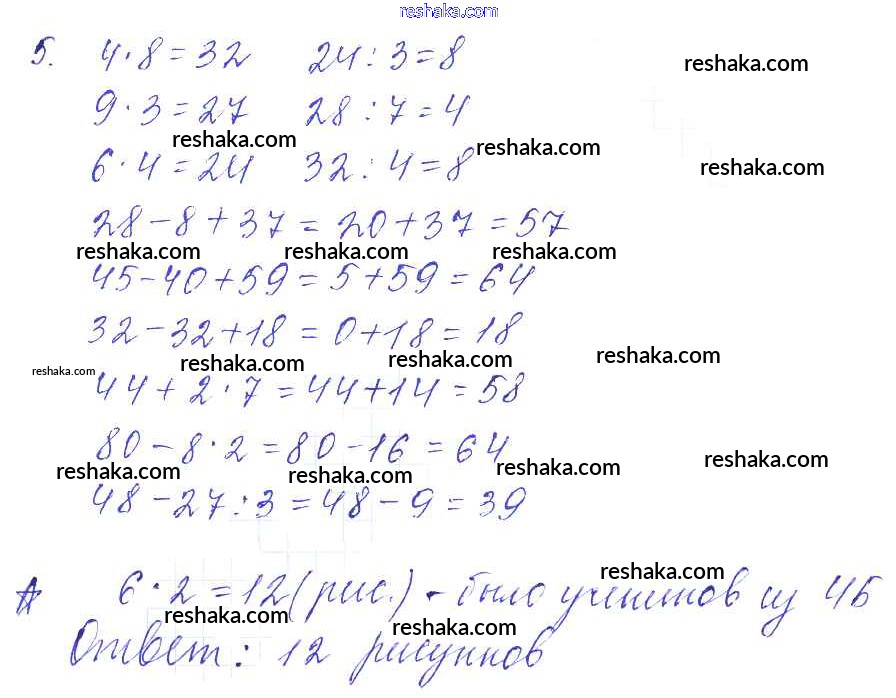 reshaka.com
5. 4·8=32 24:3=8
reshaka.com
9·3=27 28:7=4
reshaka.com reshaka.com
6·4=24 32:4=8
reshaka.com
28-8+37=20+37=57
reshaka.com reshaka.com reshaka.com
45-40+59=5+59=64
32-32+18=0+18=18
reshaka.com reshaka.com reshaka.com
reshaka.com
44+2·7=44+14=58
80-8·2=80-16=64
reshaka.com reshaka.com reshaka.com reshaka.com
48-27:3=48-9=39
reshaka.com
6·2=12(рис.) - было учеников из 4Б
reshaka.com reshaka.com
Ответ: 12 рисунков